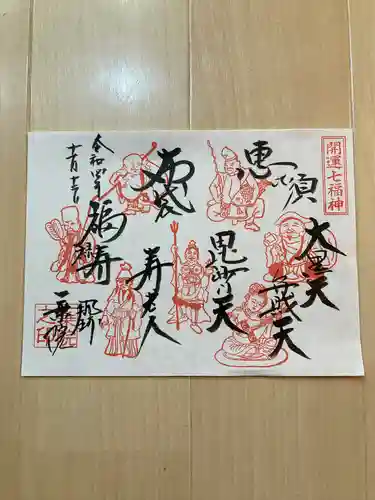 開運七福神
恵比須
大黒天
毘沙門天
弁財天
布袋
寿老人
福禄寿
令和四年
十一月十二日